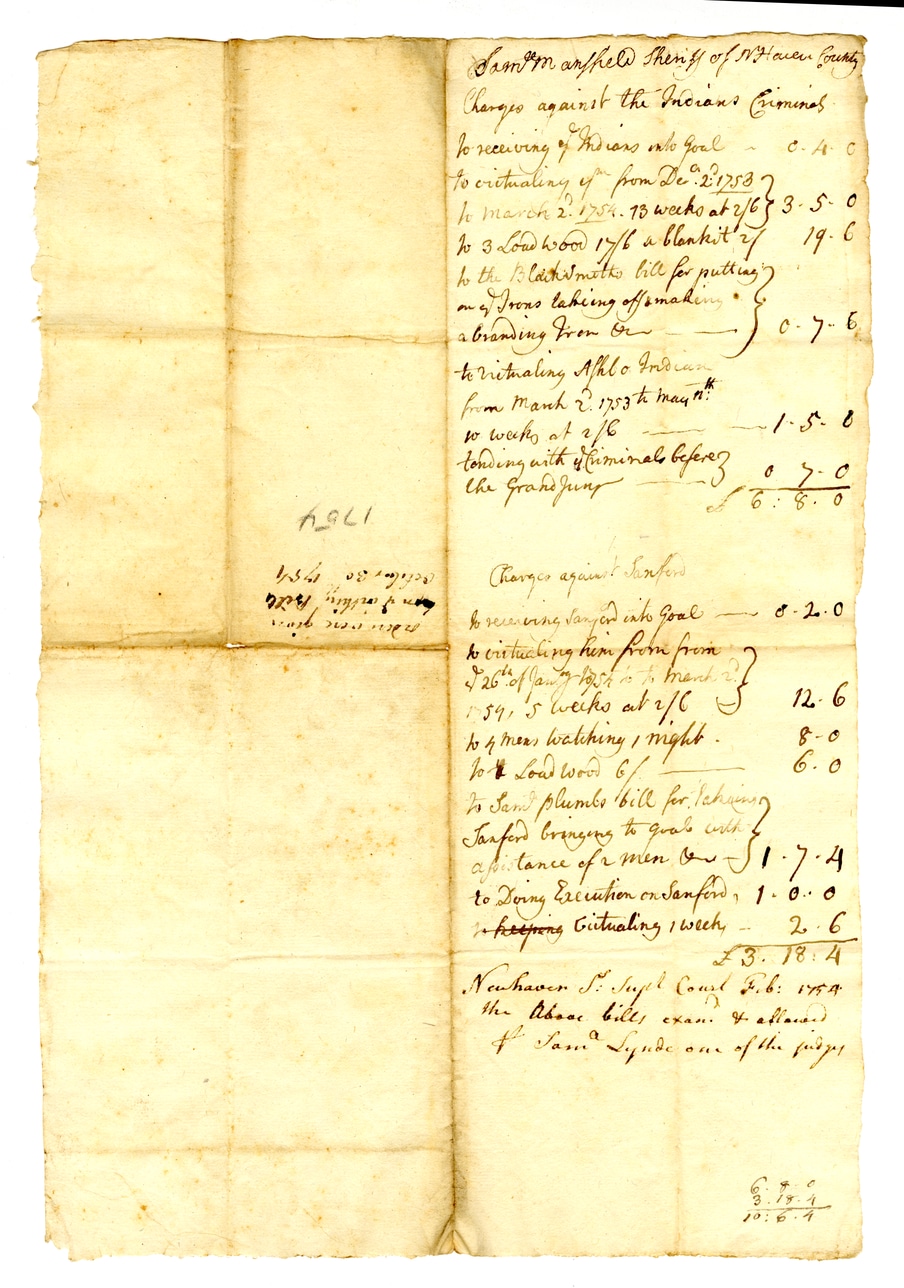 Saml Mansfield Sheriff of N Haven County
Charges against the Indians Criminals
to receiving ye Indians into Goal - 0-4-0
to victualing ym from Decr 2d 1753
to March 2d 1754. 13 weeks at 2/6 3-5-0
to 3 Load wood 17/6 a blankit 2/ 19-6
to the Black Smiths bill for putting
on ye Irons takeing off & making
a branding Iron &c 0-7-6
to victualing Ashbo Indian
from March 2d. 1753 to May 11th
10 weeks at 2/6 1-5-0
tending with ye Criminals before
the Grand Jury 0 7-0
£ 6:8.0
Charges against Sanford
to receiving Sanford into Goal 0-2-0
to victualing him from from
ye 26th of Janry 1754 to March 2d
1754, 5 weeks at 2/6 12-6
to 4 mens watching 1 night - 8-0
to 1 Load wood 6/ 6-0
to Saml plumbs bill for takeing
Sanford bringing to Goal with
assistance of 2 men &c 1-7-4
to Doing Execution on Sanford, 1-0-0
to keeping victualing 1 week, 2-6
£3.18:4
Newhaven Sc. Supr Court Feb: 1754
the Above bills examd & allowed
pr Saml Lynde one of the judges
6.8.0
3.18.4
10:6.4
1754
orders were given
on ye within Bill
October 30 1754